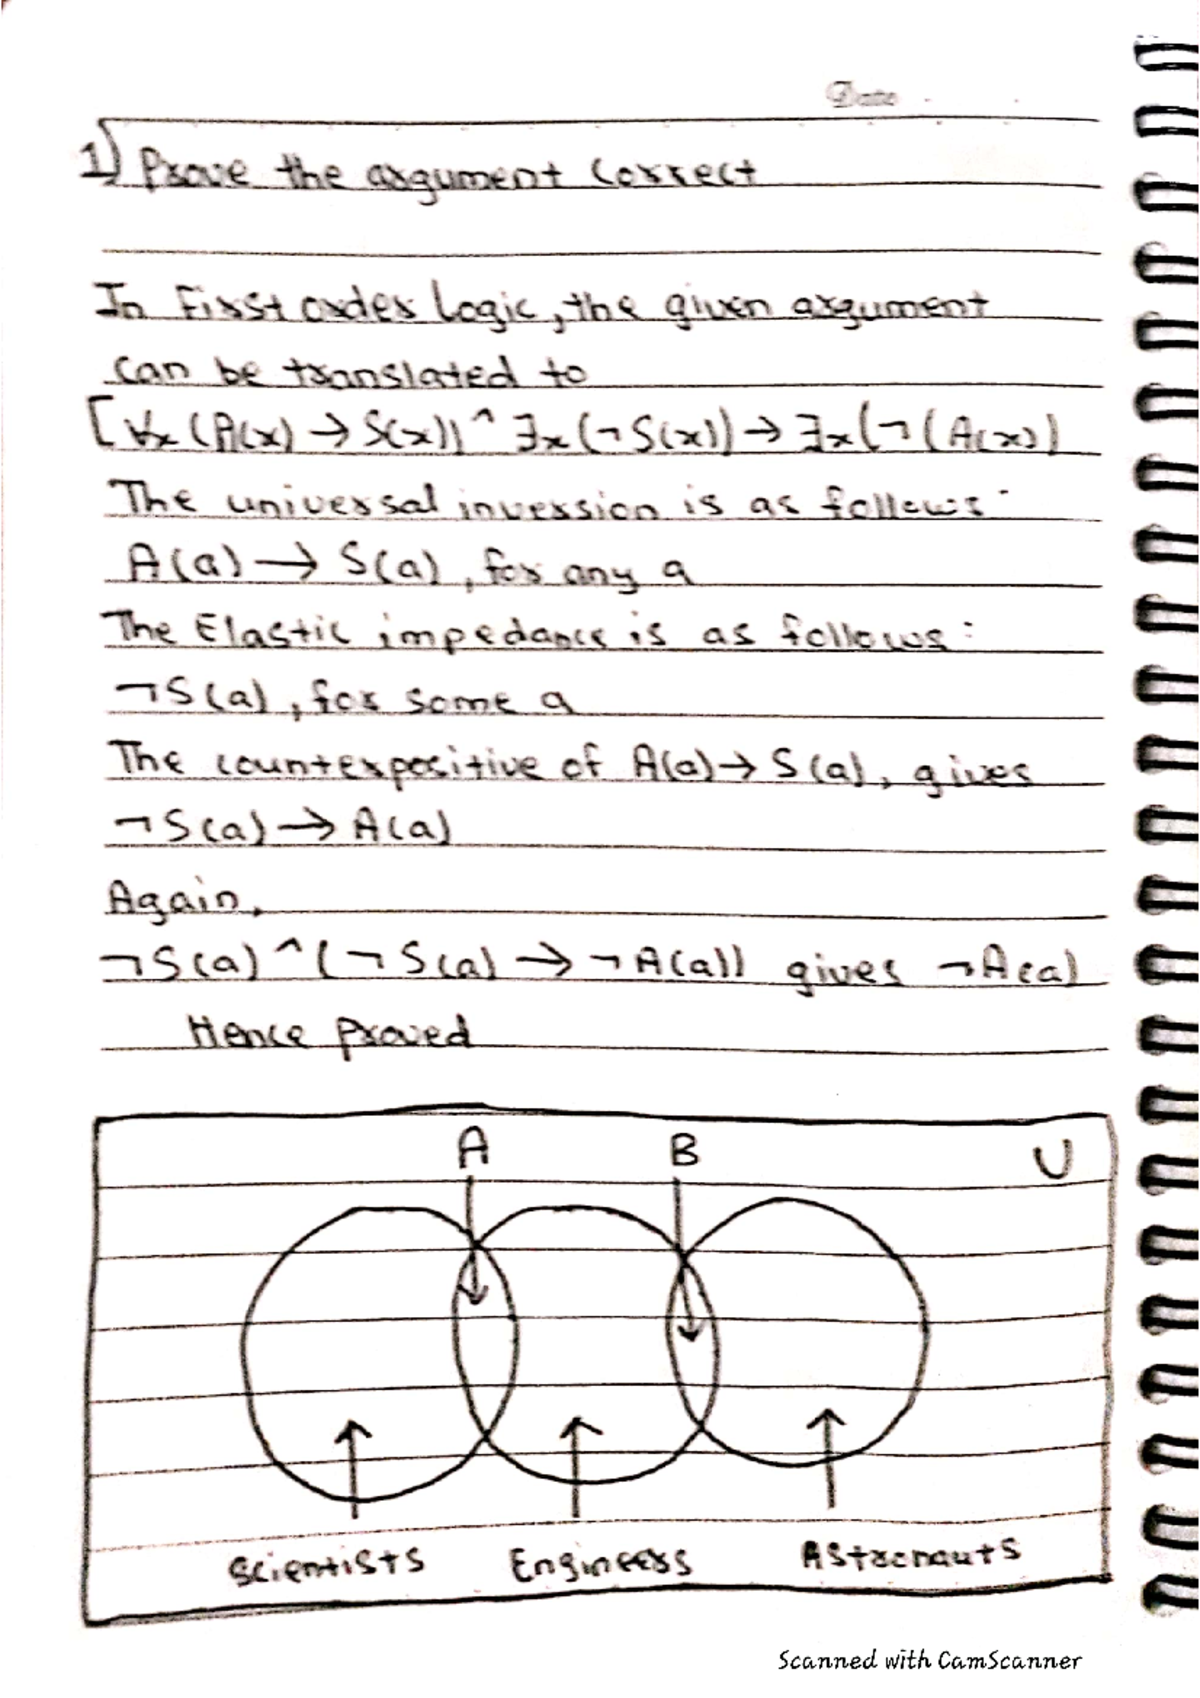 Date
1) Prove the argument correct
In First order Logic, the given argument
can be translated to
[∀x (A(x) → S(x)) ^ ∃x (¬S(x)) → ∃x (¬(A(x))
The universal inversion is as follows:
A(a) → S(a), for any a
The Elastic impedance is as follows:
¬S(a), for some a
The counterpositive of A(a) → S(a), gives
¬S(a) → A(a)
Again,
¬S(a) ^ (¬S(a) → ¬A(a)) gives ¬A(a)
Hence proved
A B U
Scientists Engineers Astronauts
Scanned with CamScanner